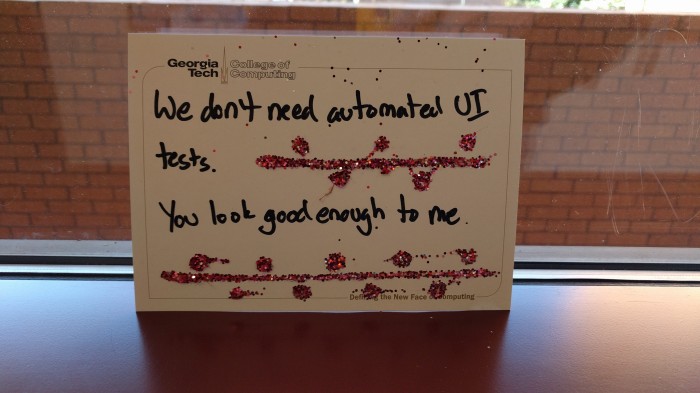 Georgia
Tech
College of
Computing
We don't need automated UI
tests.
You look good enough to me.
Defining the New Face of Computing